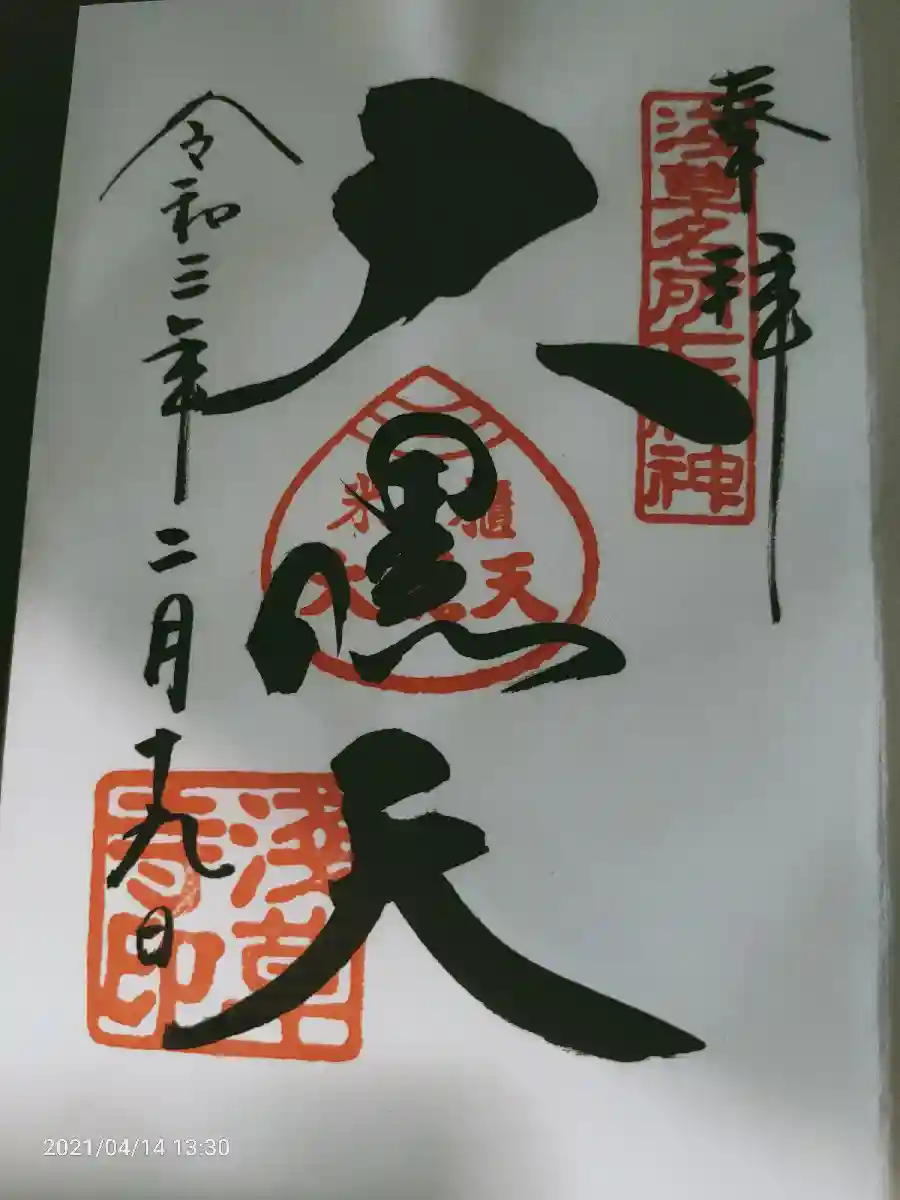 奉拝
浅草名所七福神
大黒天
米櫃
大黒天
令和三年二月十九日
浅草寺印
2021/04/14 13:30